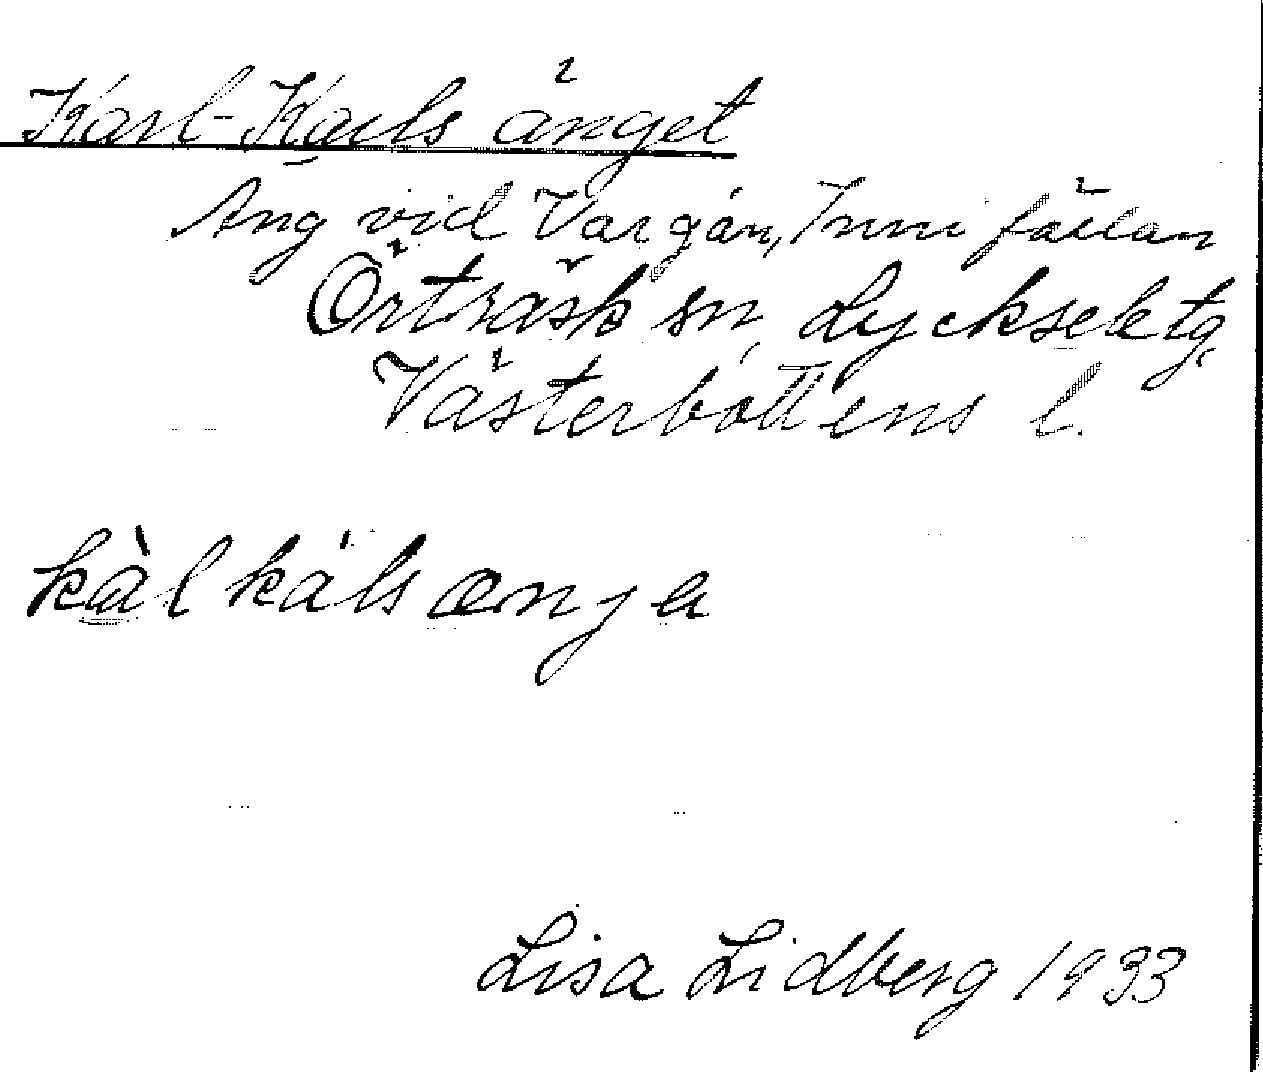 Karl-Karls änget
Äng vid Vargån, Inni fällan
Örträsk sn, Lycksele tg,
Västerbottens l.
kàl káls ænja
Lisa Lidberg 1933